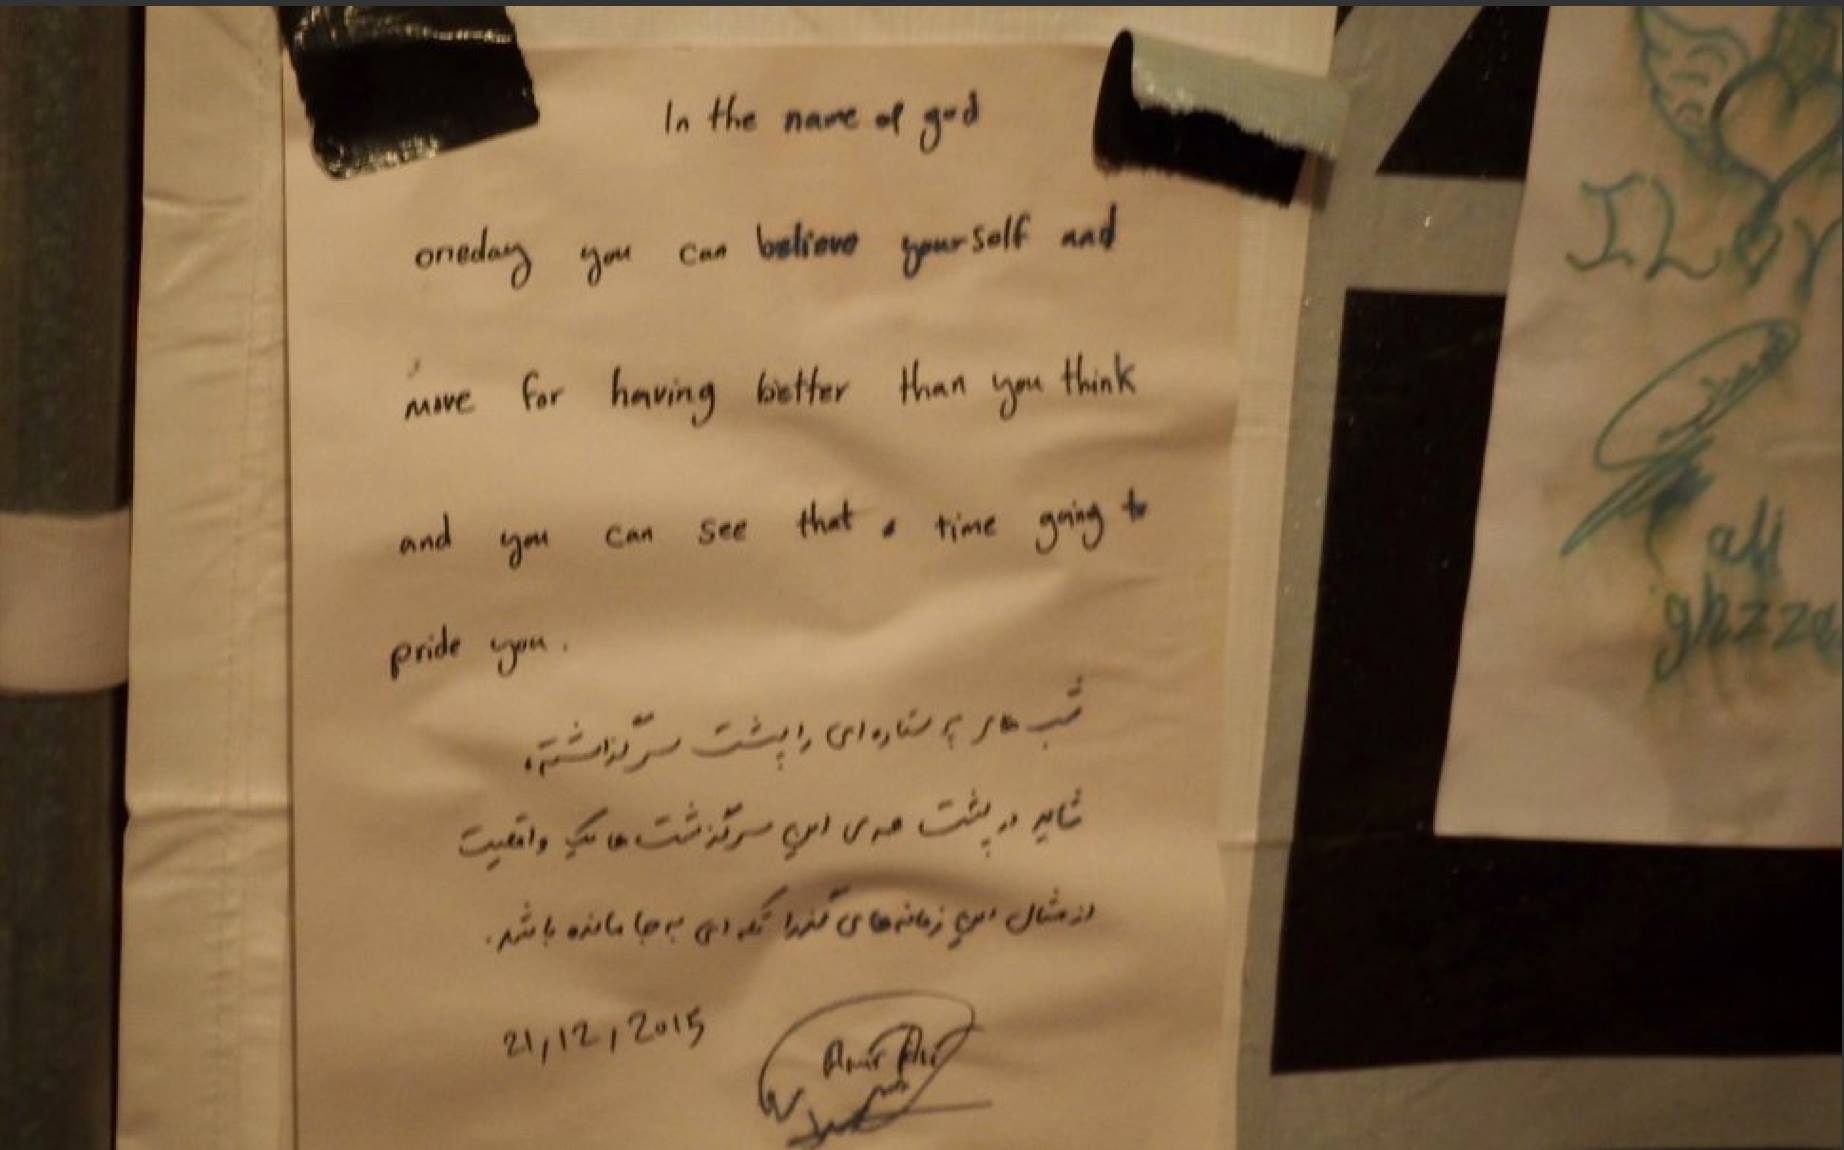 In the name of god
oneday you can believe yourself and
move for having better than you think
and you can see that a time going to
pride you.
شب های پر ستاره ای را پشت سر گذاشتم،
شاید در پشت همه ی این سرگذشت ها یک واقعیت
از مثال این زمانه های گذرا تکه ای به جا مانده باشد.
21,12,2015
Amir Ali
I LOV
ali